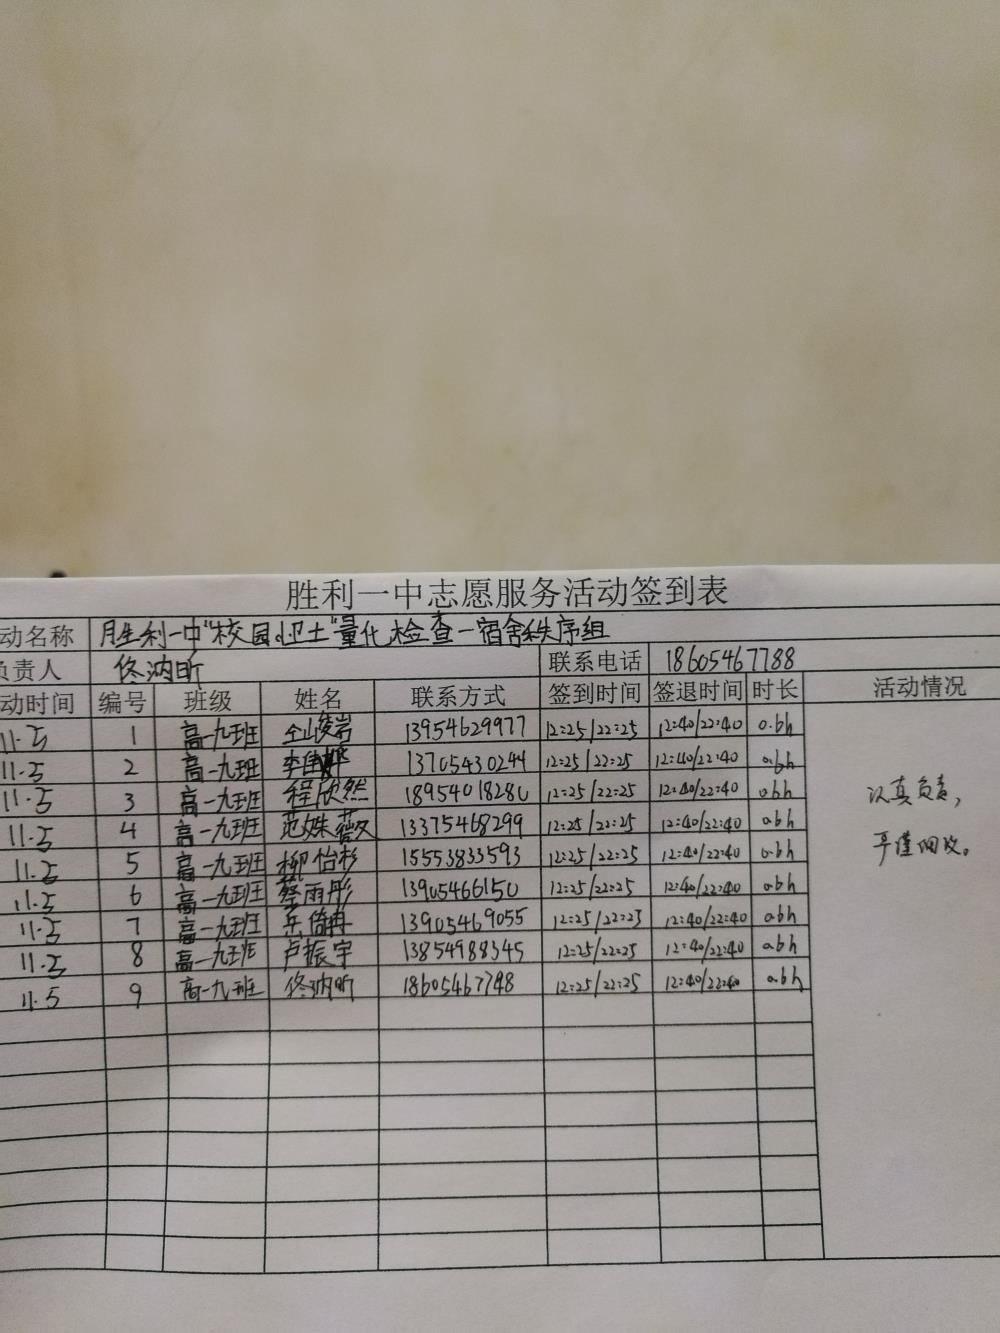 胜利一中志愿服务活动签到表
动名称 胜利一中"校园卫士"量化检查-宿舍秩序组
负责人 佟汭昕 联系电话 18605467788
动时间 编号 班级 姓名 联系方式 签到时间 签退时间 时长 活动情况
11.5 1 高一九班 13954629977 12:25/22:25 12:40/22:40 0.6h
11.5 2 高一九班 李佳 13705430244 12:25/22:25 12:40/22:40 0.6h
11.5 3 高一九班 程欣然 18954018280 12:25/22:25 12:40/22:40 0.6h
11.5 4 高一九班 范姝薇 13375468299 12:25/22:25 12:40/22:40 0.6h
11.5 5 高一九班 柳怡杉 15553833593 12:25/22:25 12:40/22:40 0.6h
11.5 6 高一九班 蔡雨彤 13905466150 12:25/22:25 12:40/22:40 0.6h
11.5 7 高一九班 岳倚冉 13905469055 12:25/22:25 12:40/22:40 0.6h
11.5 8 高一九班 卢振宇 13854988345 12:25/22:25 12:40/22:40 0.6h
11.5 9 高一九班 佟汭昕 18605467748 12:25/22:25 12:40/22:40 0.6h
认真负责,
严谨细致。